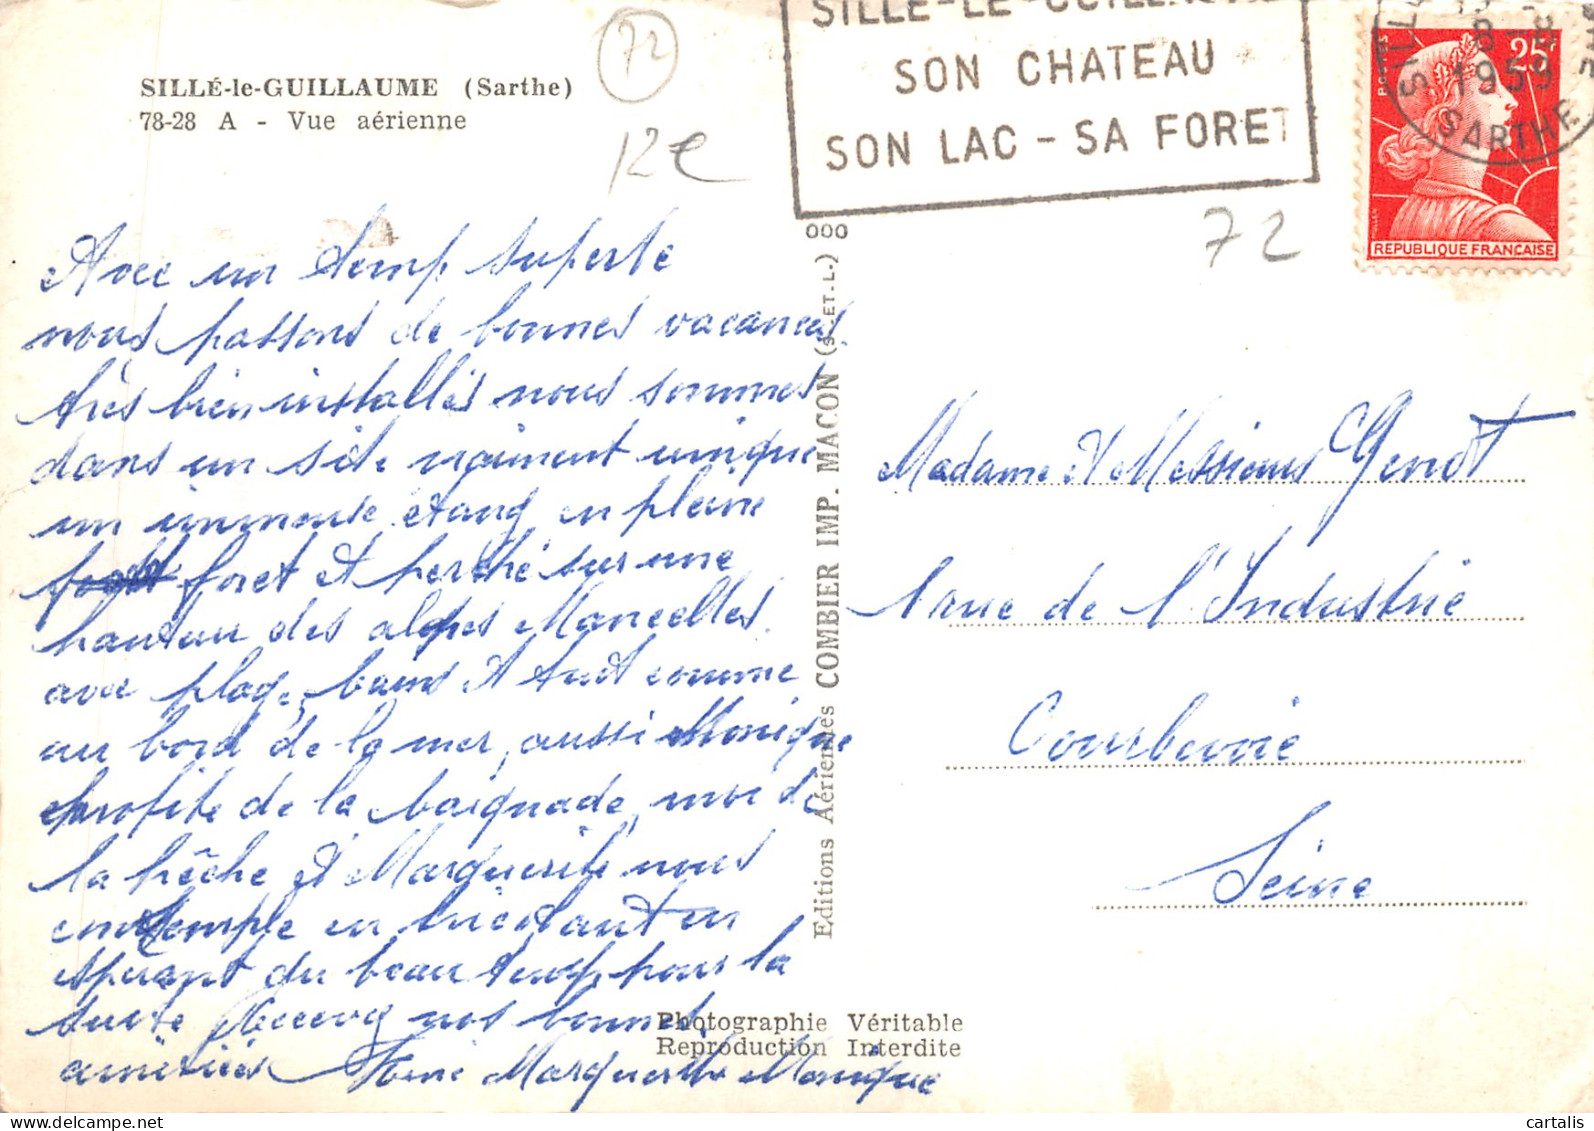 SILLÉ-le-GUILLAUME (Sarthe)
78-28 A - Vue aérienne
72
12€
SILLE-LE-GUILLAUME
SON CHATEAU
SON LAC - SA FORET
SILL
8-8
1959
SARTHE
POSTES
25F
MULLER
REPUBLIQUE FRANÇAISE
72
000
Avec un temp superbe
nous passons de bonnes vacances
très bien installés nous sommes
dans un site vraiment unique
un immense étang en pleine
foret et perché sur une
hauteur des alpes Mancelles
avec plage, bains et tout comme
au bord de la mer, aussi Monique
profite de la baignade, moi de
la pêche et Marguerite nous
contemple en tricotant en
espérant du beau temps pour la
suite Recevez nos bonnes
amitiés Marguerite Monique
Editions Aériennes COMBIER IMP. MACON (S.-ET.L.)
Photographie Véritable
Reproduction Interdite
Madame et Messieurs Genot
1 rue de l'Industrie
Courbevoie
Seine
cartalis